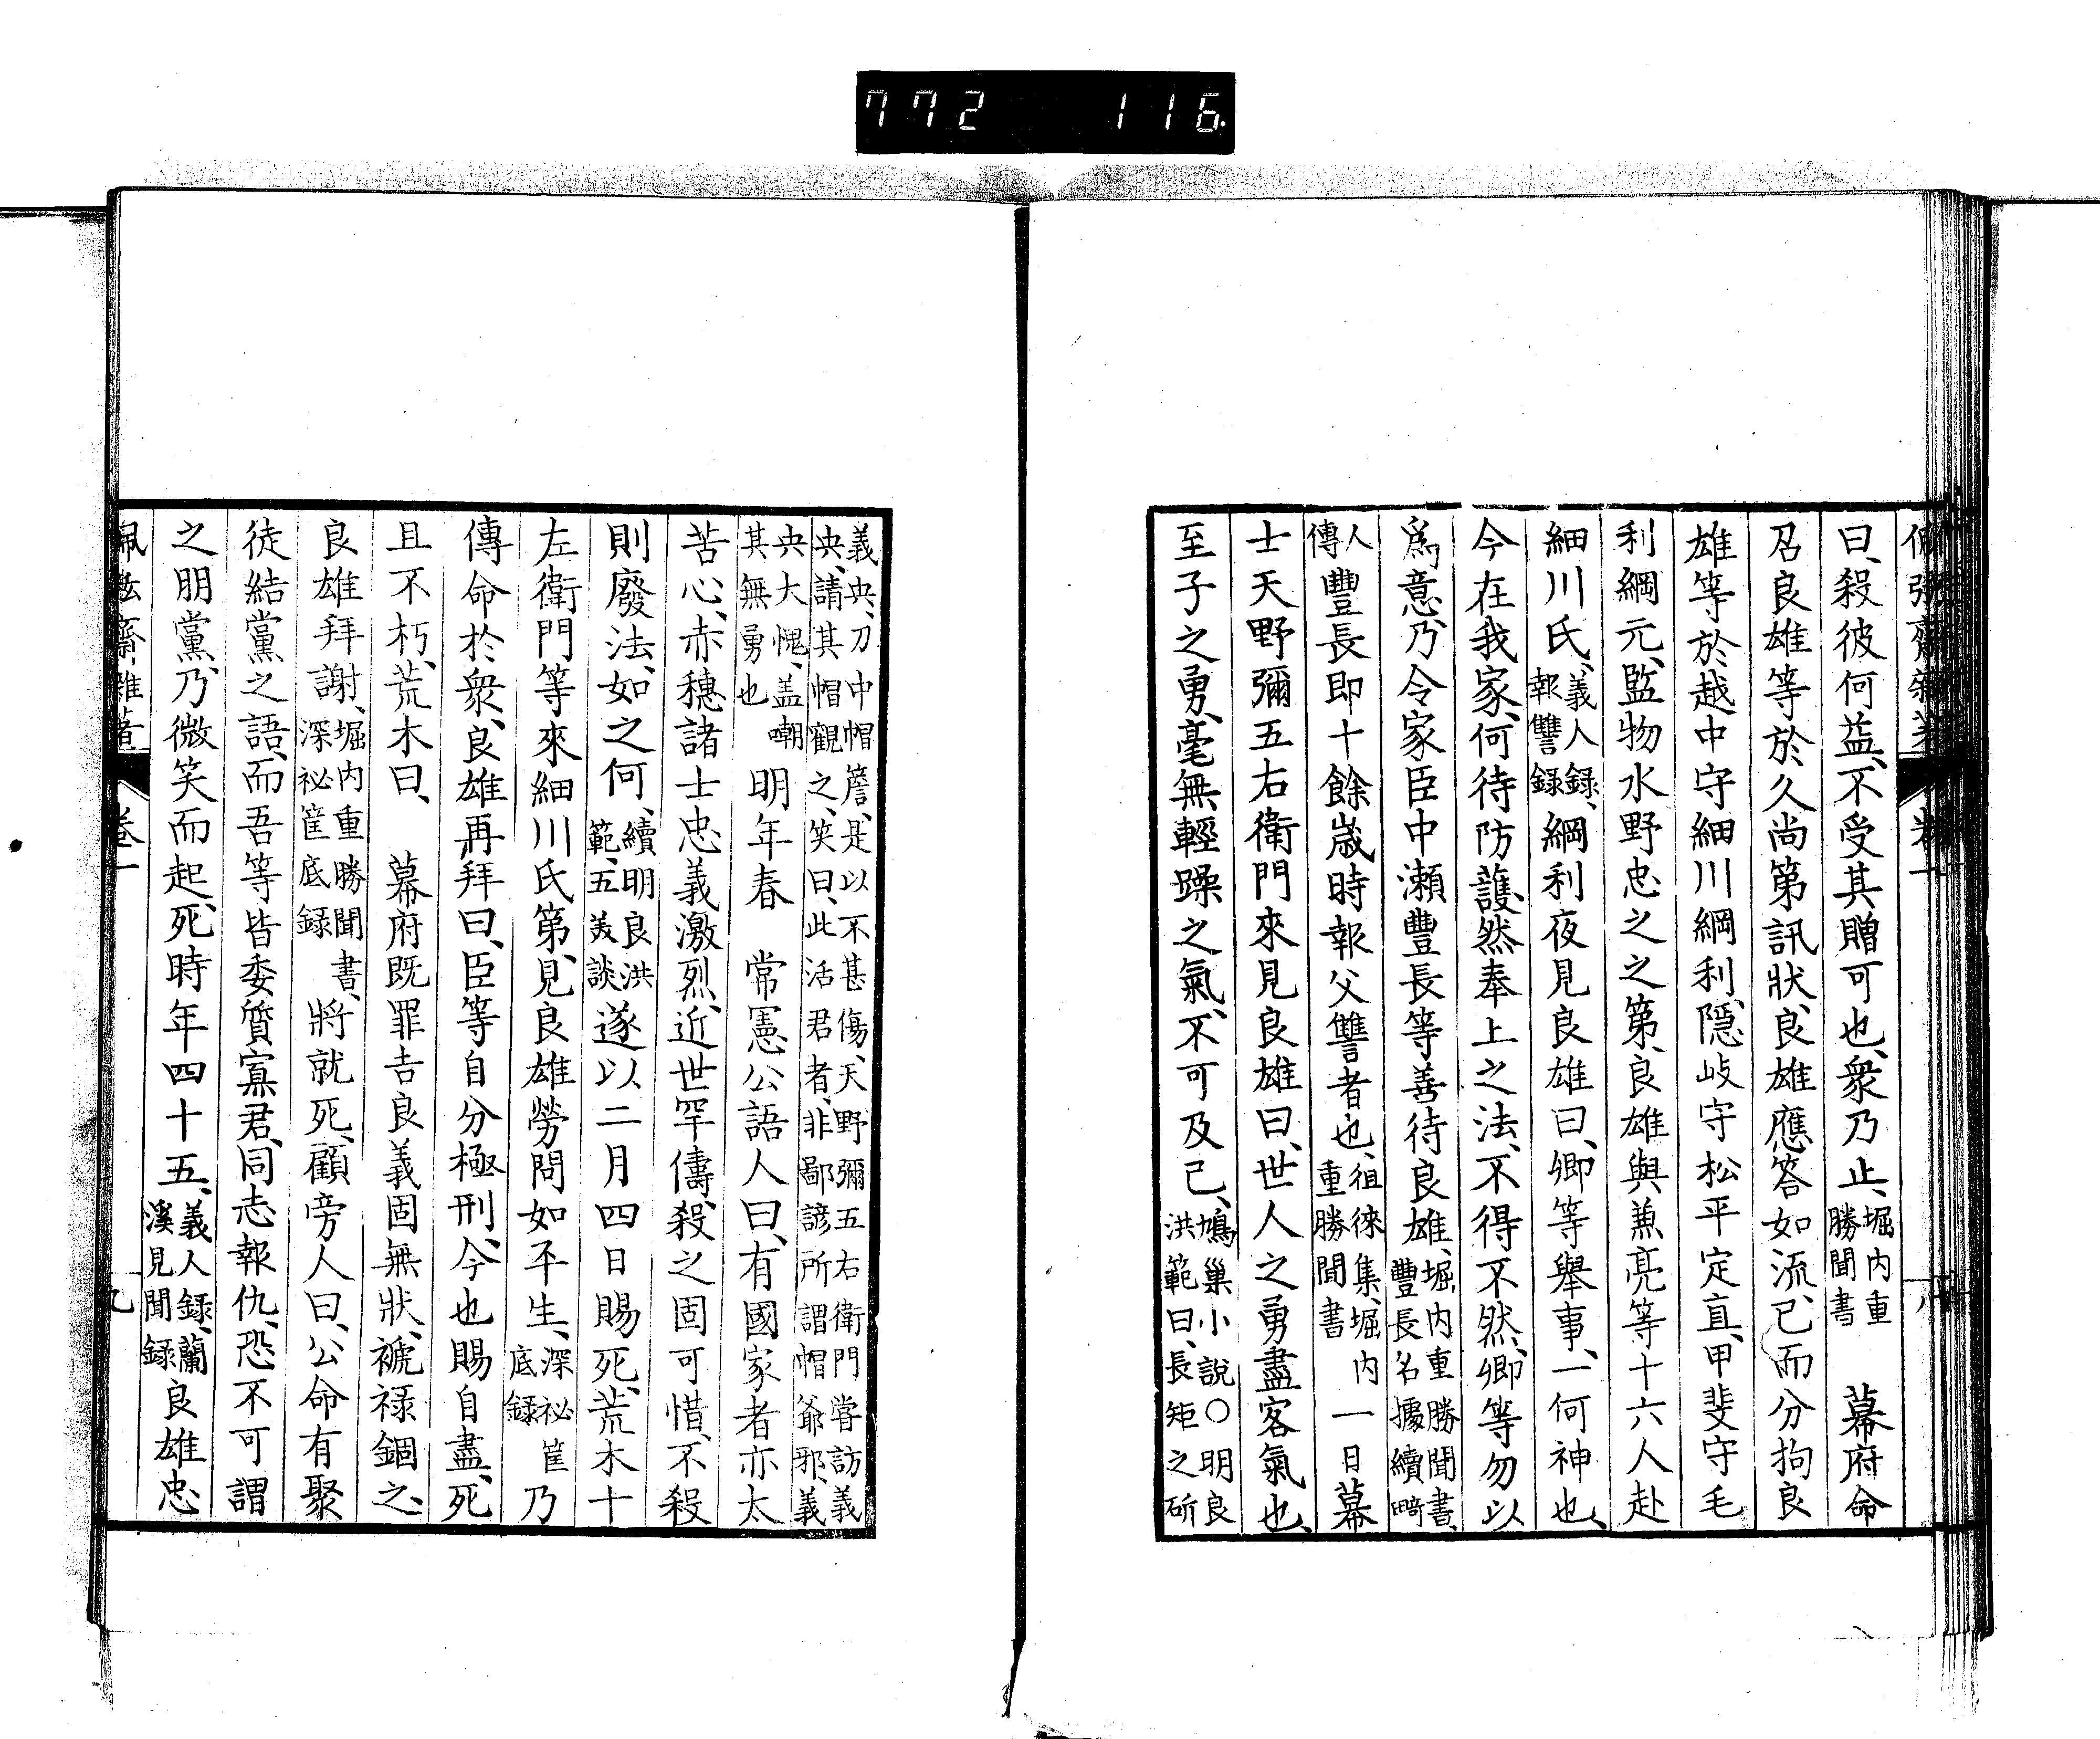 772 116.
曰、殺彼何益、不受其贈可也、衆乃止、堀内重勝聞書 幕府命
召良雄等於久尚第訊狀、良雄應答如流、已而分拘良
雄等於越中守細川綱利、隱岐守松平定直、甲斐守毛
利綱元、監物水野忠之之第、良雄與兼亮等十六人赴
細川氏、義人録、報讐録綱利夜見良雄曰、卿等舉事、一何神也、
今在我家、何待防護、然奉上之法、不得不然、卿等勿以
爲意、乃令家臣中瀬豐長等善待良雄、堀内重勝聞書、豐長名據續﨑
人傳豐長即十餘歳時報父讐者也、徂徠集、堀内重勝聞書一日幕
士天野彌五右衛門來見良雄曰、世人之勇盡客氣也、
至子之勇、毫無輕躁之氣、不可及已、鳩巢小説○明良洪範曰、長矩之斫
義央、刀中帽簷、是以不甚傷、天野彌五右衛門嘗訪義
央、請其帽觀之、笑曰、此活君者、非鄙諺所謂帽爺邪、義
央大愧、盖嘲其無勇也 明年春 常憲公語人曰、有國家者亦太
苦心、赤穗諸士忠義激烈、近世罕儔、殺之固可惜、不殺
則廢法、如之何、續明良洪範、五美談遂以二月四日賜死、荒木十
左衛門等來細川氏第、見良雄勞問如平生、深祕筐底録乃
傳命於衆、良雄再拜曰、臣等自分極刑、今也賜自盡、死
且不朽、荒木曰、 幕府既罪吉良義固無狀、褫祿錮之、
良雄拜謝、堀内重勝聞書、深祕筐底録將就死、顧旁人曰、公命有聚
徒結黨之語、而吾等皆委質寡君、同志報仇、恐不可謂
之朋黨、乃微笑而起、死時年四十五、義人録、蘭溪見聞録良雄忠
齋雜著 卷一 九